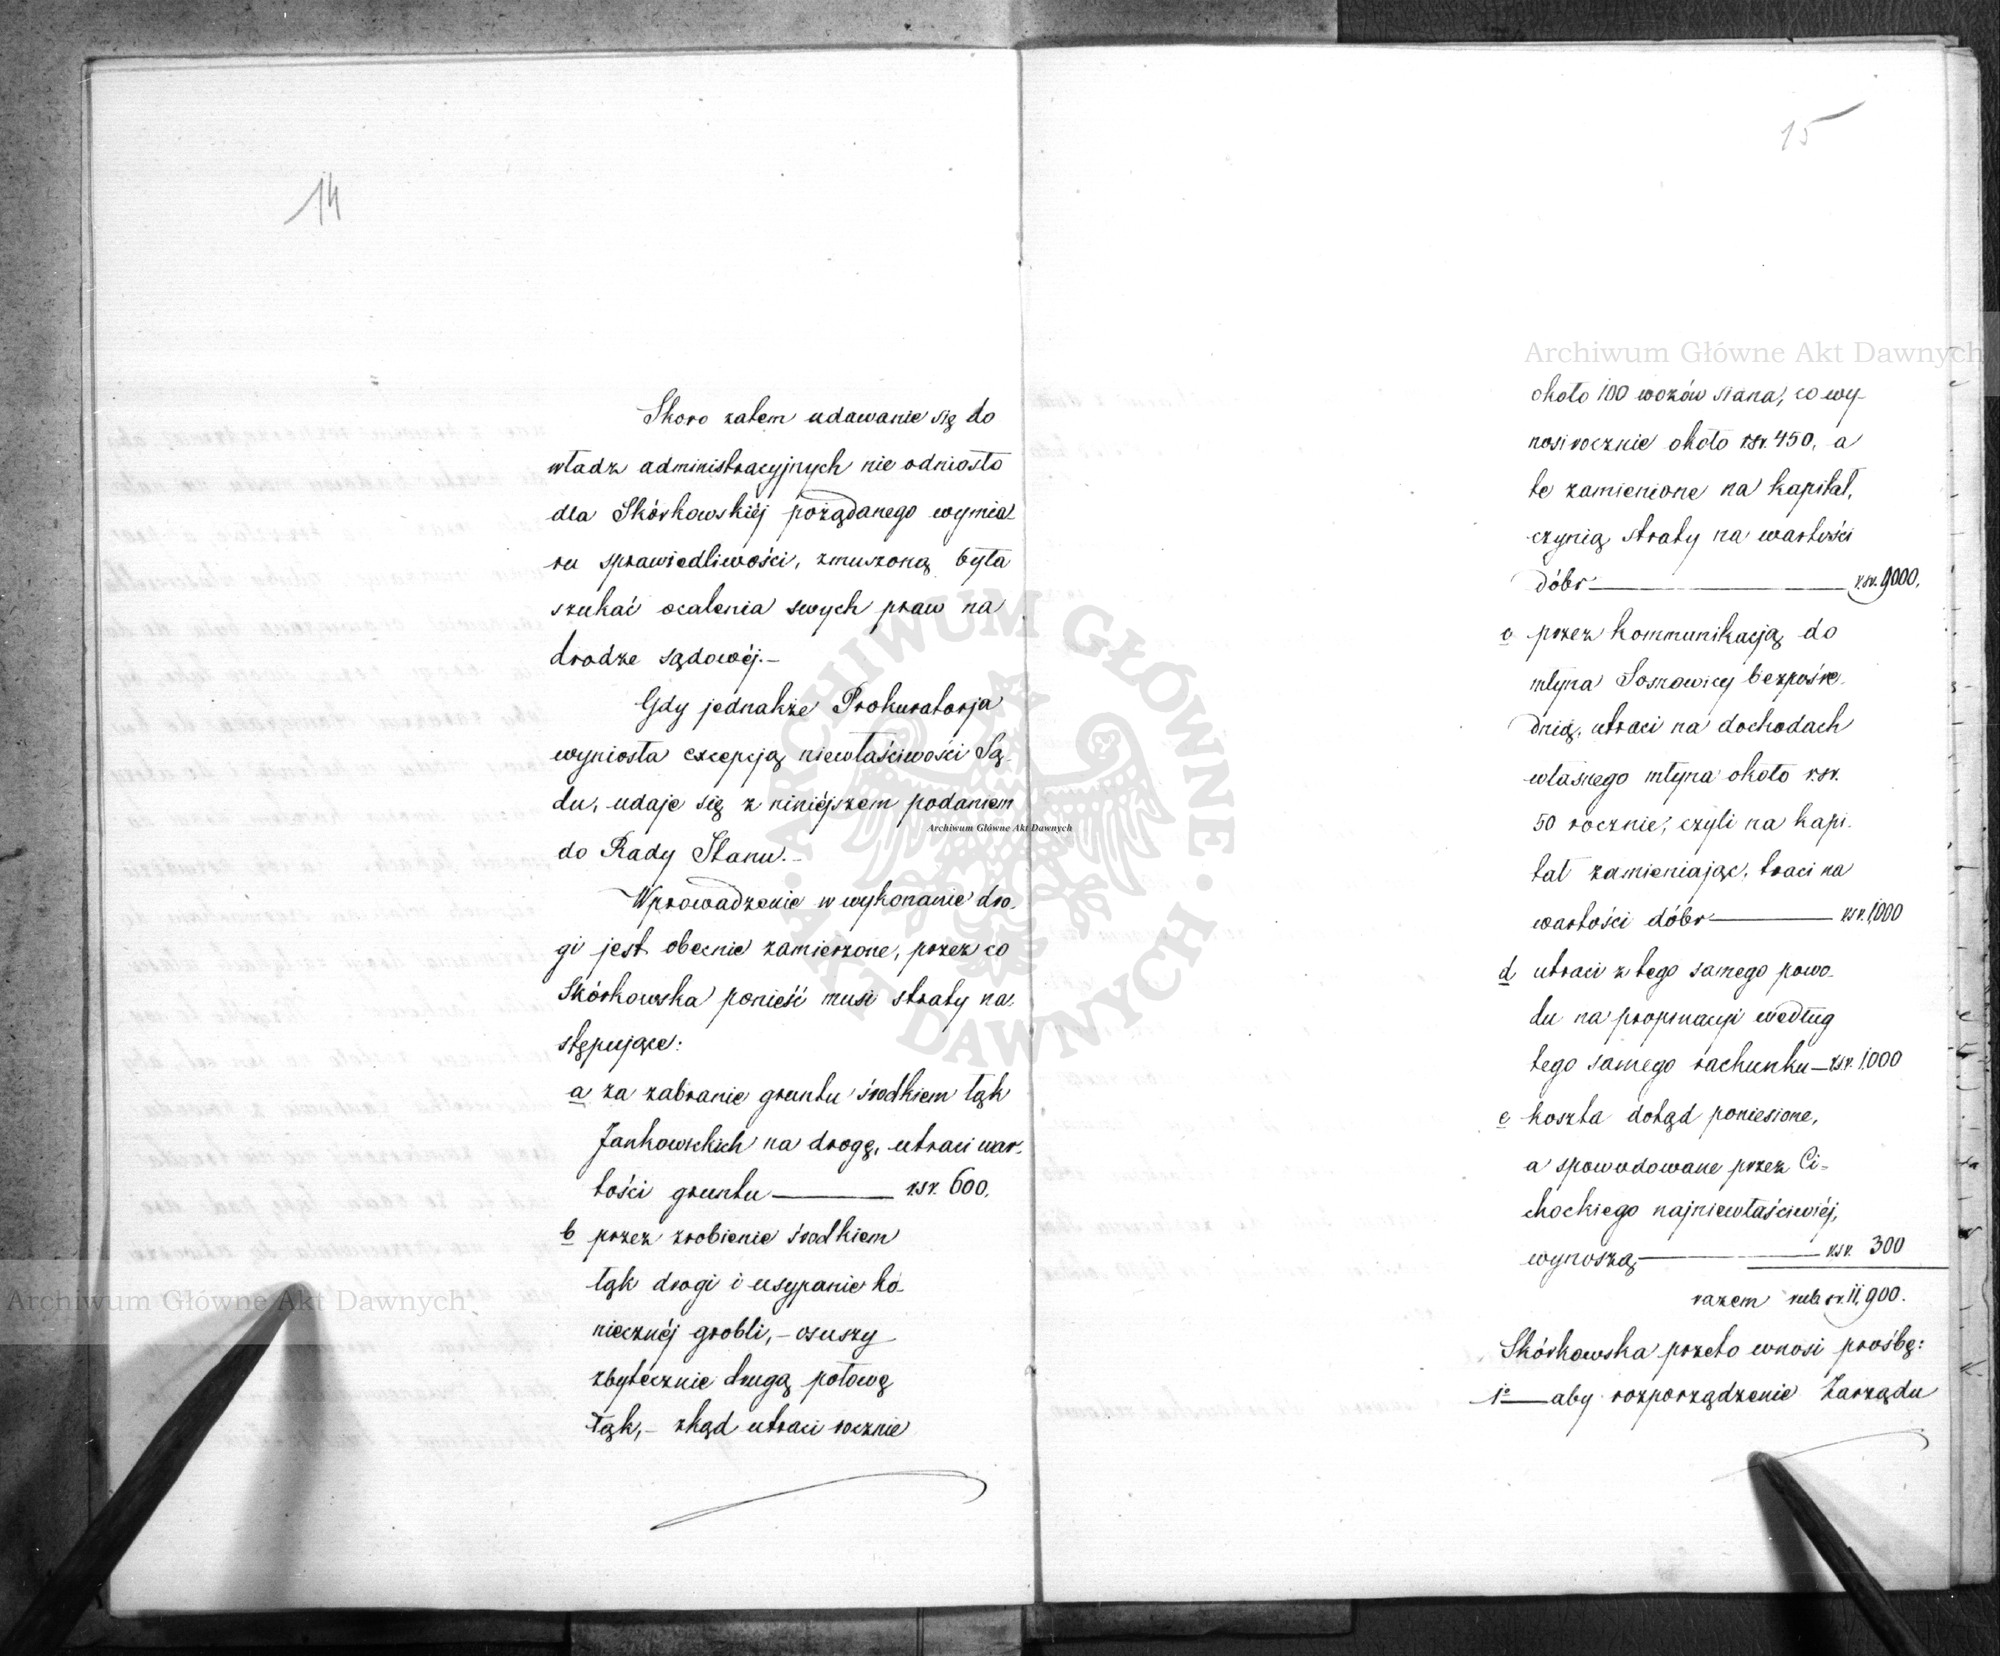 14
Skoro zatem udawanie się do
władz administracyjnych nie odniosło
dla Skórkowskiéj pożądanego wymia-
ru sprawiedliwości, zmuszoną była
szukać ocalenia swych praw na
drodze sądowéj.—
Gdy jednakże Prokuratorja
wyniosła excepcją niewłaściwości Są-
du, udaje się z niniéjszem podaniem
do Rady Stanu.—
Wprowadzenie w wykonanie dro-
gi jest obecnie zamierzone, przez co
Skórkowska ponieść musi straty na-
stępujące:
a za zabranie gruntu środkiem łąk
Jankowickich na drogę, utraci war-
tości gruntu — rsr. 600.
b przez zrobienie środkiem
łąk drogi i usypanie ko-
niecznéj grobli,— osuszy
zbytecznie drugą połowę
łąk,— zkąd utraci rocznie
15
około 100 wozów siana, co wy-
nosi rocznie około rsr. 450, a
te zamienione na kapitał,
czynią straty na wartości
dóbr — rsr. 9000.
c przez kommunikacją do
młyna Sosnowicy bezpośre-
dnią, utraci na dochodach
własnego młyna około rsr.
50 rocznie, czyli na kapi-
tał zamieniając, traci na
wartości dóbr — rsr. 1,000
d utraci z tego samego powo-
du na propinacyi według
tego samego rachunku — rsr. 1,000
e koszta dotąd poniesione,
a spowodowane przez Ci-
chockiego najniewłaściwiéj,
wynoszą — rsr. 300
razem rub. sr. 11,900.
Skórkowska przeto wnosi prośbę:
1o — aby rozporządzenie Zarządu
Archiwum Główne Akt Dawnych
Archiwum Główne Akt Dawnych
Archiwum Główne Akt Dawnych
· ARCHIWUM GŁÓWNE · AKT DAWNYCH